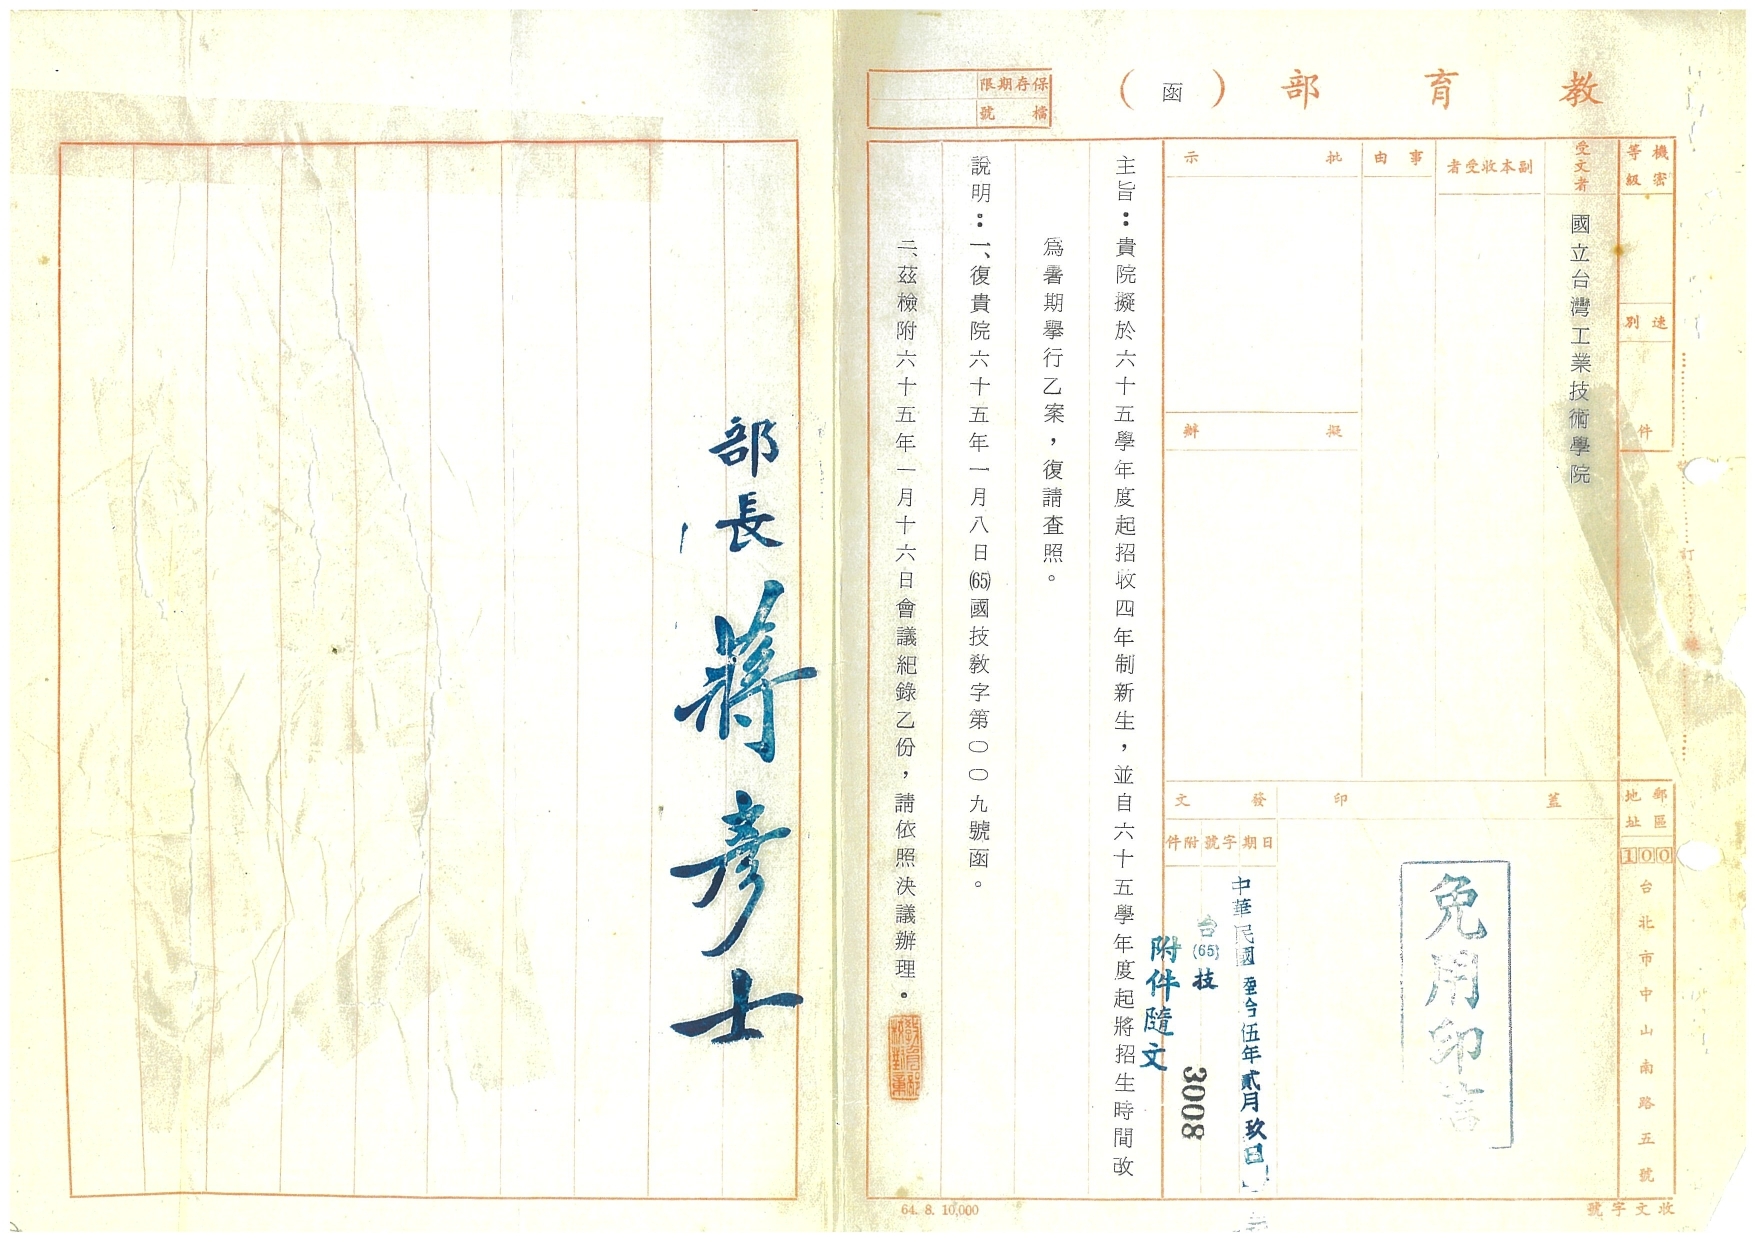 教育部（函）
保存期限
檔號
機密等級
速別
件
郵區地址
100
台北市中山南路五號
收文字號
受文者
國立台灣工業技術學院
副本收受者
事由
批示
擬辦
蓋印
發文
日期
字號
附件
免用印信
中華民國陸拾伍年貳月玖日
台(65)技
3008
附件隨文
訂
主旨：貴院擬於六十五學年度起招收四年制新生，並自六十五學年度起將招生時間改
為暑期舉行乙案，復請查照。
說明：一、復貴院六十五年一月八日(65)國技教字第〇〇九號函。
二、茲檢附六十五年一月十六日會議紀錄乙份，請依照決議辦理。
教育部校對章
部長蔣彥士
64. 8. 10,000